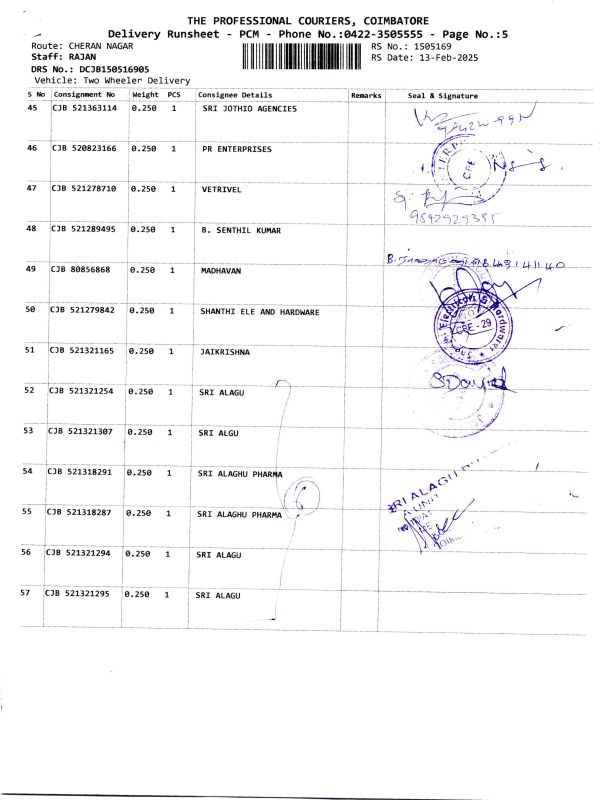 THE PROFESSIONAL COURIERS, COIMBATORE
Delivery Runsheet - PCM - Phone No.:0422-3505555 - Page No.:5
Route: CHERAN NAGAR RS No.: 1505169
Staff: RAJAN RS Date: 13-Feb-2025
DRS No.: DCJB150516905
Vehicle: Two Wheeler Delivery
S No Consignment No Weight PCS Consignee Details Remarks Seal & Signature
45 CJB 521363114 0.250 1 SRI JOTHIO AGENCIES
46 CJB 520823166 0.250 1 PR ENTERPRISES
CBE
47 CJB 521278710 0.250 1 VETRIVEL
9592929355
48 CJB 521289495 0.250 1 B. SENTHIL KUMAR
49 CJB 80856868 0.250 1 MADHAVAN
50 CJB 521279842 0.250 1 SHANTHI ELE AND HARDWARE
CBE - 29
51 CJB 521321165 0.250 1 JAIKRISHNA
52 CJB 521321254 0.250 1 SRI ALAGU
53 CJB 521321307 0.250 1 SRI ALGU
54 CJB 521318291 0.250 1 SRI ALAGHU PHARMA
SRI ALAGU
55 CJB 521318287 0.250 1 SRI ALAGHU PHARMA
6
56 CJB 521321294 0.250 1 SRI ALAGU
57 CJB 521321295 0.250 1 SRI ALAGU